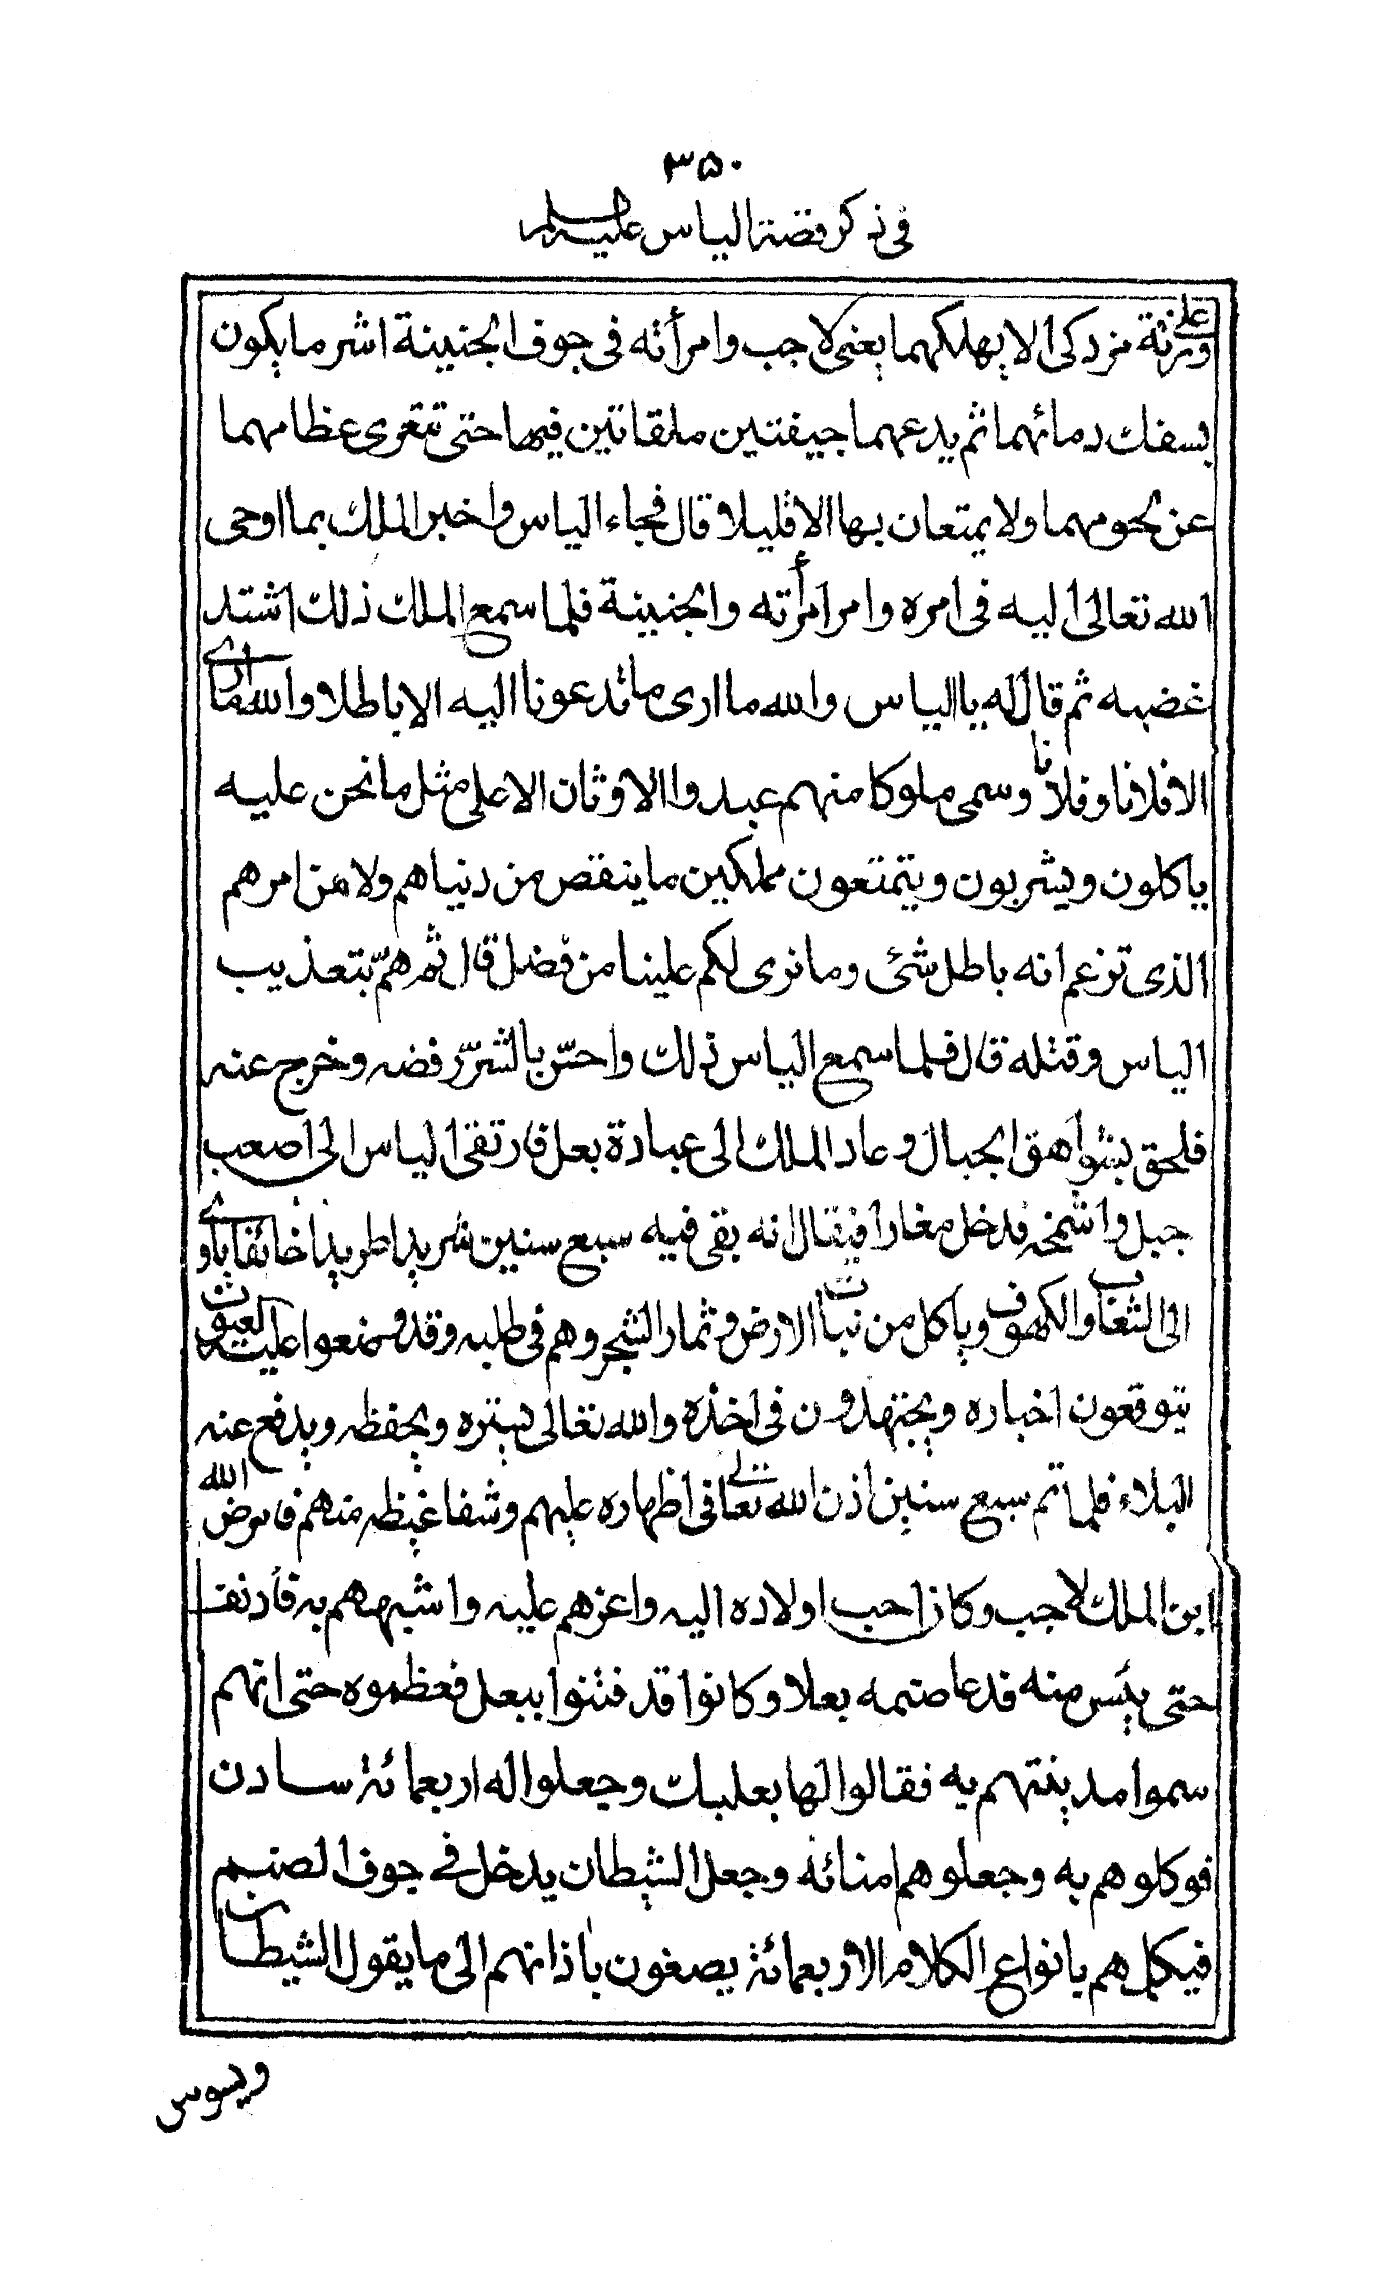 ٣٥٠
فى ذكر قصة الياس عليه السلم
على ورثة مزدكى الا يهلكهما يعنى لاجب وامرأته فى جوف الجنينة اشر ما يكون
بسفك دمائهما ثم يدعهما جيفتين ملقاتين فيها حتى تتعرى عظامهما
عن لحومهما ولا يمتعان بها الا قليلا قال فجاء الياس واخبر الملك بما اوحى
الله تعالى اليه فى امره وامر امرأته والجنينة فلما سمع الملك ذلك اشتد
غضبه ثم قال له يا الياس والله ما ارى ما تدعونا اليه الا باطلا والله ما ارى
الا فلانا وفلانا وسمى ملوكا منهم عبدوا الاوثان الا على مثل ما نحن عليه
ياكلون ويشربون ويتمتعون مملكين ما ينقص من دنياهم ولا من امرهم
الذى تزعم انه باطل شئ وما نرى لكم علينا من فضل قال ثم همّ بتعذيب
الياس وقتله قال فلما سمع الياس ذلك واحسّ بالشرّ رفضه وخرج عنه
فلحق بشواهق الجبال وعاد الملك الى عبادة بعل فارتقى الياس الى اصعب
جبل واشمخه فدخل مغارا فيقال انه بقى فيه سبع سنين شريدا طريدا خائفا ياوى
الى الشعاب والكهوف وياكل من نبات الارض وثمار الشجر وهم فى طلبه وقد وضعوا عليه العيون
يتوقعون اخباره ويجتهدون فى اخذه والله تعالى يستره ويحفظه ويدفع عنه
البلاء فلما تم سبع سنين اذن الله تعالى فى اظهاره عليهم وشفا غيظه منهم فامرض الله
ابن الملك لاجب وكان احب اولاده اليه واعزهم عليه واشبههم به فأدنف
حتى يئس منه فدعا صنمه بعلا وكانوا قد فتنوا ببعل فعظموه حتى انهم
سموا مدينتهم به فقالوا لها بعلبك وجعلوا له اربعمائة سادن
فوكلوهم به وجعلوهم امنائه وجعل الشيطان يدخل فى جوف الصنم
فيكلمهم بانواع الكلام والاربعمائة يصغون باذانهم الى ما يقول الشيطان
ويسوس